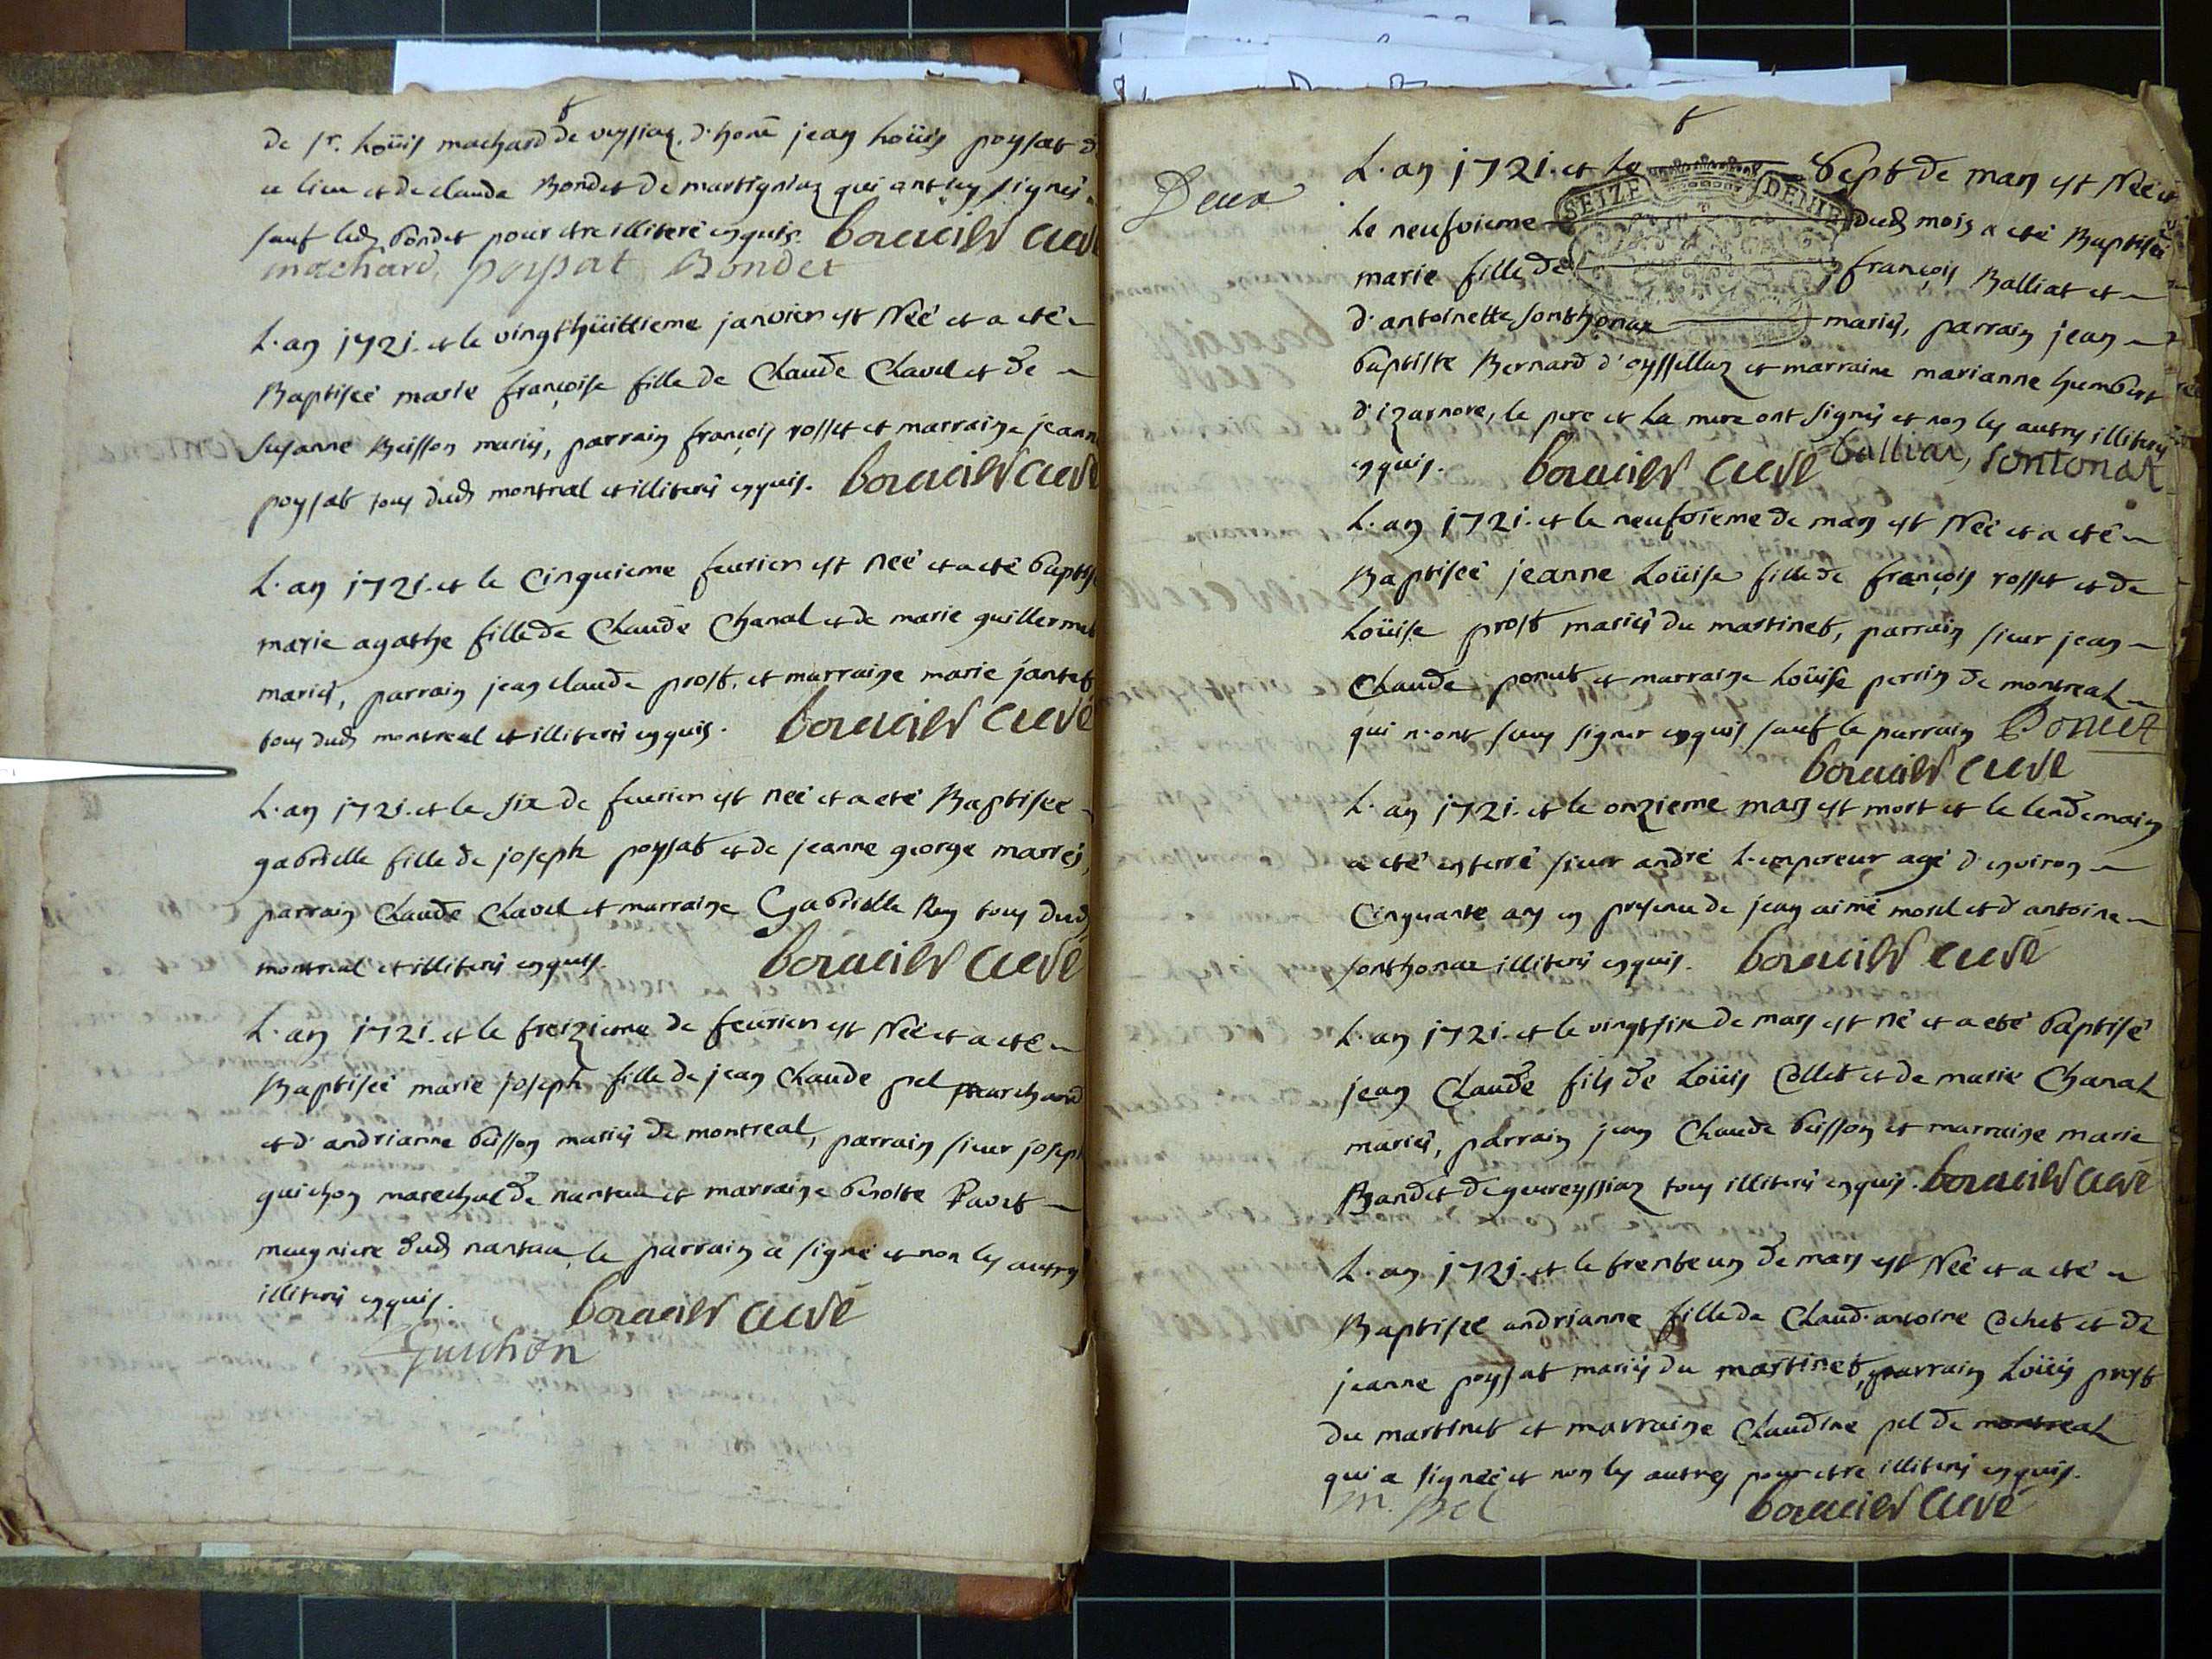 de Sr. Loüis machard de veyssiaz, d'honē jean Loüis poysat d
ce lieu et de claude Bondet de martigniaz qui ont icy signés
sauf led. bondet pour etre illiteré enquis. bouvier curé
machard, poysat Bondet
L'an 1721. et le vingthüittieme janvier est Née et a eté
Baptisée marie françoise fille de Claude Clavel et de
susanne Buisson mariés, parrain françois rosset et marraine jeann
poysat tous dud. montreal et illiterés enquis. bouvier curé
L'an 1721. et le Cinquieme feurier est née et a eté baptisé
marie agathe fille de Claude Chanal et de marie guillermet
mariés, parrain jean claude prost, et marraine marie jantet
tous dud. montreal et illiterés enquis. bouvier curé
L'an 1721. et le six de feurier est née et a eté Baptisée
gabrielle fille de joseph poysat et de jeanne george mariés,
parrain Claude Clavel et marraine Gabrielle Rey tous dud.
montreal et illiterés enquis. bouvier curé
L'an 1721. et le treizieme de feurier est Née et a eté
Baptisée marie joseph fille de jean Claude pel marchand
et d'andrianne buisson mariés de montreal, parrain sieur joseph
guichon marechal de nantua et marraine benoite Ravet
meugniere dud. nantua, le parrain a signé et non les autres
illiterés enquis. bouvier curé
Guichon
Deux
L'an 1721. et le Sept de mars est Née et
SEIZE DENIE
le neufvieme dud. mois a eté Baptisée
marie fille de françois Balliat et
d'antoinette sonthonax mariés, parrain jean
baptiste Bernard d'oyssellaz et marraine marianne humbert
d'izarnore, le pere et la mere ont signés et non les autres illiterés
enquis. bouvier curé balliat, sontonax
L'an 1721. et le neufvieme de mars est Née et a eté
Baptisée jeanne Loüise fille de françois rosset et de
Loüise prost mariés du martinet, parrain sieur jean
Claude poncet et marraine Loüise perrin de montreal
qui n'ont sceu signer enquis sauf le parrain Poncet
bouvier curé
L'an 1721. et le onzieme mars est mort et le lendemain
a eté enterré sieur andré L'empereur agé d'environ
Cinquante ans en presence de jean aimé morel et d'antoine
sonthonax illiterés enquis. bouvier curé
L'an 1721. et le vingtsix de mars est né et a eté baptisé
jean Claude fils de Loüis Collet et de marie Chanal
mariés, parrain jean Claude buisson et marraine marie
Bandet de geureyssiaz tous illiterés enquis. bouvier curé
L'an 1721. et le trente un de mars est Née et a eté
Baptisée andrianne fille de Claud'antoine Cochet et de
jeanne poysat mariés du martinet, parrain Loüis prost
du martinet et marraine Claudine pel de montreal
qui a signée et non les autres pour etre illiterés enquis.
m. pel bouvier curé